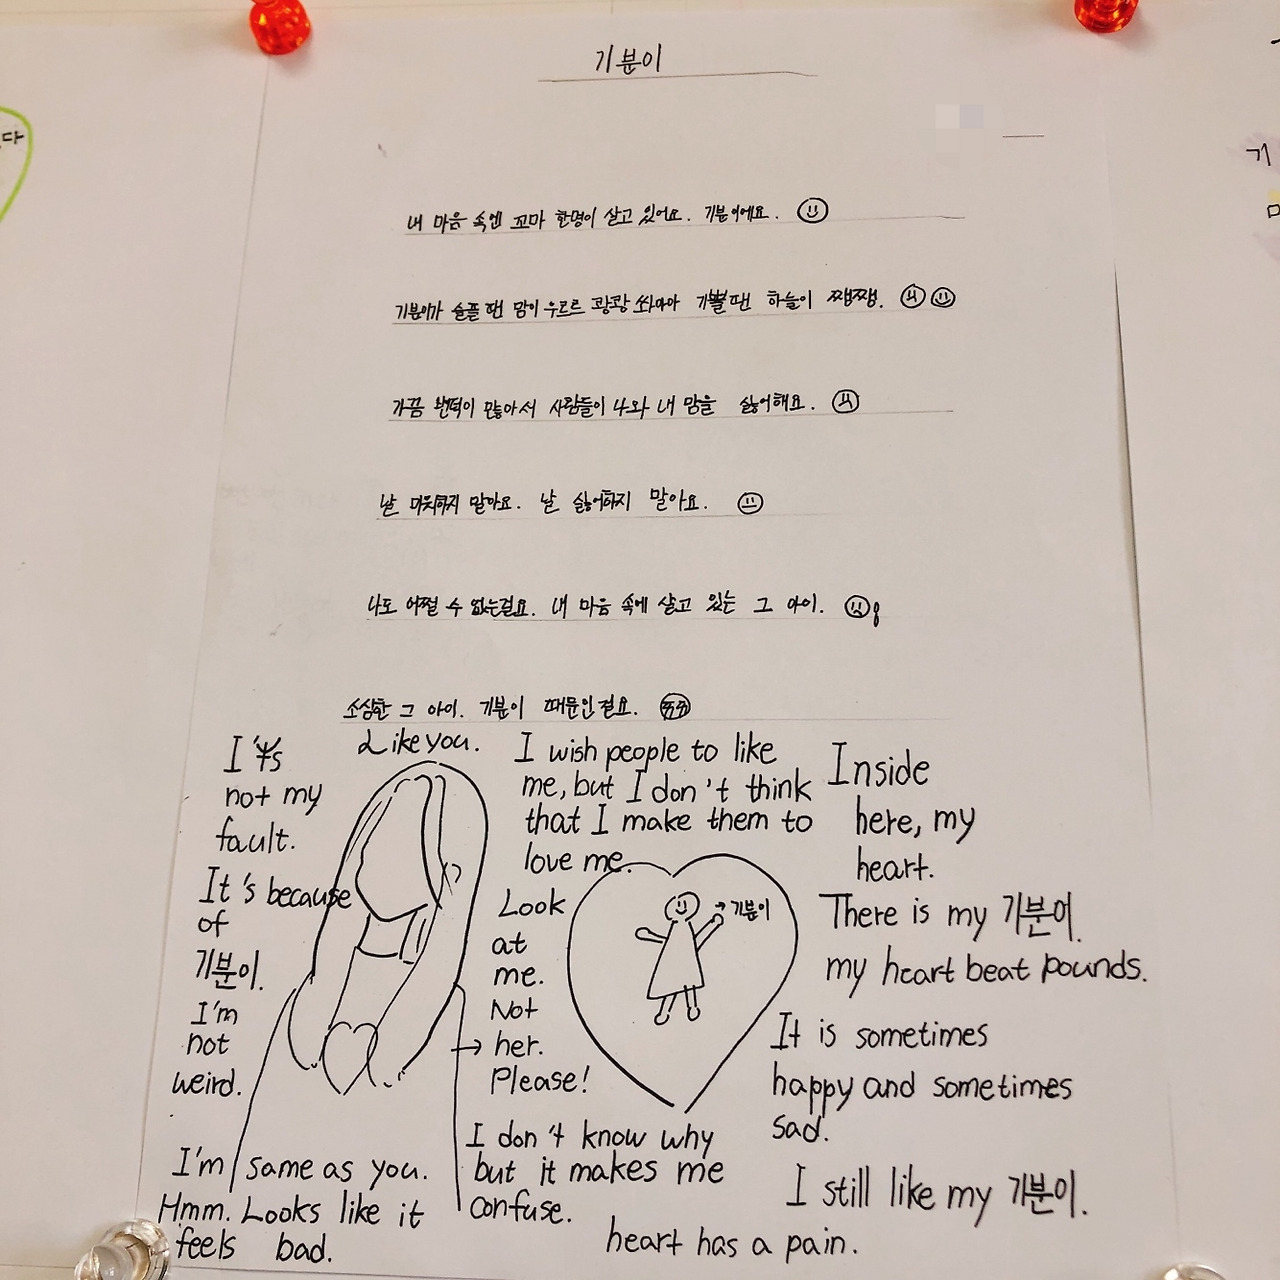 기분이
내 마음 속엔 꼬마 한명이 살고 있어요. 기분이에요.
기분이가 슬플 땐 맘이 우르르 쾅쾅 쏴아아 기쁠땐 하늘이 쨍쨍.
가끔 변덕이 많아서 사람들이 나와 내 맘을 싫어해요.
날 미워하지 말아요. 날 싫어하지 말아요.
나도 어쩔 수 없는걸요. 내 마음 속에 살고 있는 그 아이.
소심한 그 아이. 기분이 때문인걸요.
It's
not my
fault.
It's because
of
기분이.
I'm
not
weird.
I'm same as you.
Hmm. Looks like it
feels bad.
Like you.
I wish people to like
me, but I don't think
that I make them to
love me.
Look
at
me.
Not
→ her.
Please!
→ 기분이
I don't know why
but it makes me
confuse.
Inside
here, my
heart.
There is my 기분이.
my heart beat pounds.
It is sometimes
happy and sometimes
sad.
I still like my 기분이.
heart has a pain.
다
기